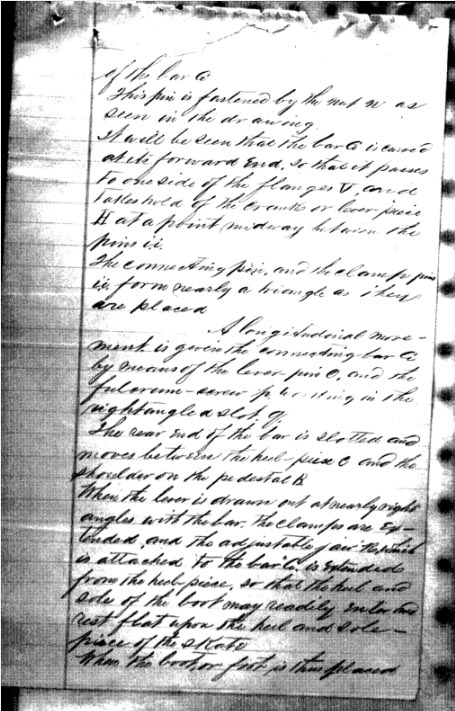 of the bar G
This pin is fastened by the nut n as
seen in the drawing.
It will be seen that the bar G is curved
at its forward end, so that it passes
to one side of the flanges V, and
takes hold of the crank or lever-piece
H at a point midway between the
pins ii.
The connecting pin, and the clamp pins
ii, form nearly a triangle as they
are placed
A longitudinal move-
ment is given the connecting-bar G
by means of the lever-pin O, and the
fulcrum-screw p, working in the
right angled slot q.
The rear end of the bar is slotted and
moves between the heel-piece C and the
shoulder on the pedestal B
When the lever is drawn out at nearly right
angles with the bar, the clamps are ex-
tended, and the adjustable jaw which
is attached to the bar G, is extended
from the heel-piece, so that the heel and
sole of the boot may readily enter and
rest flat upon the heel and sole-
piece of the skate
When the boot or foot, is thus placed